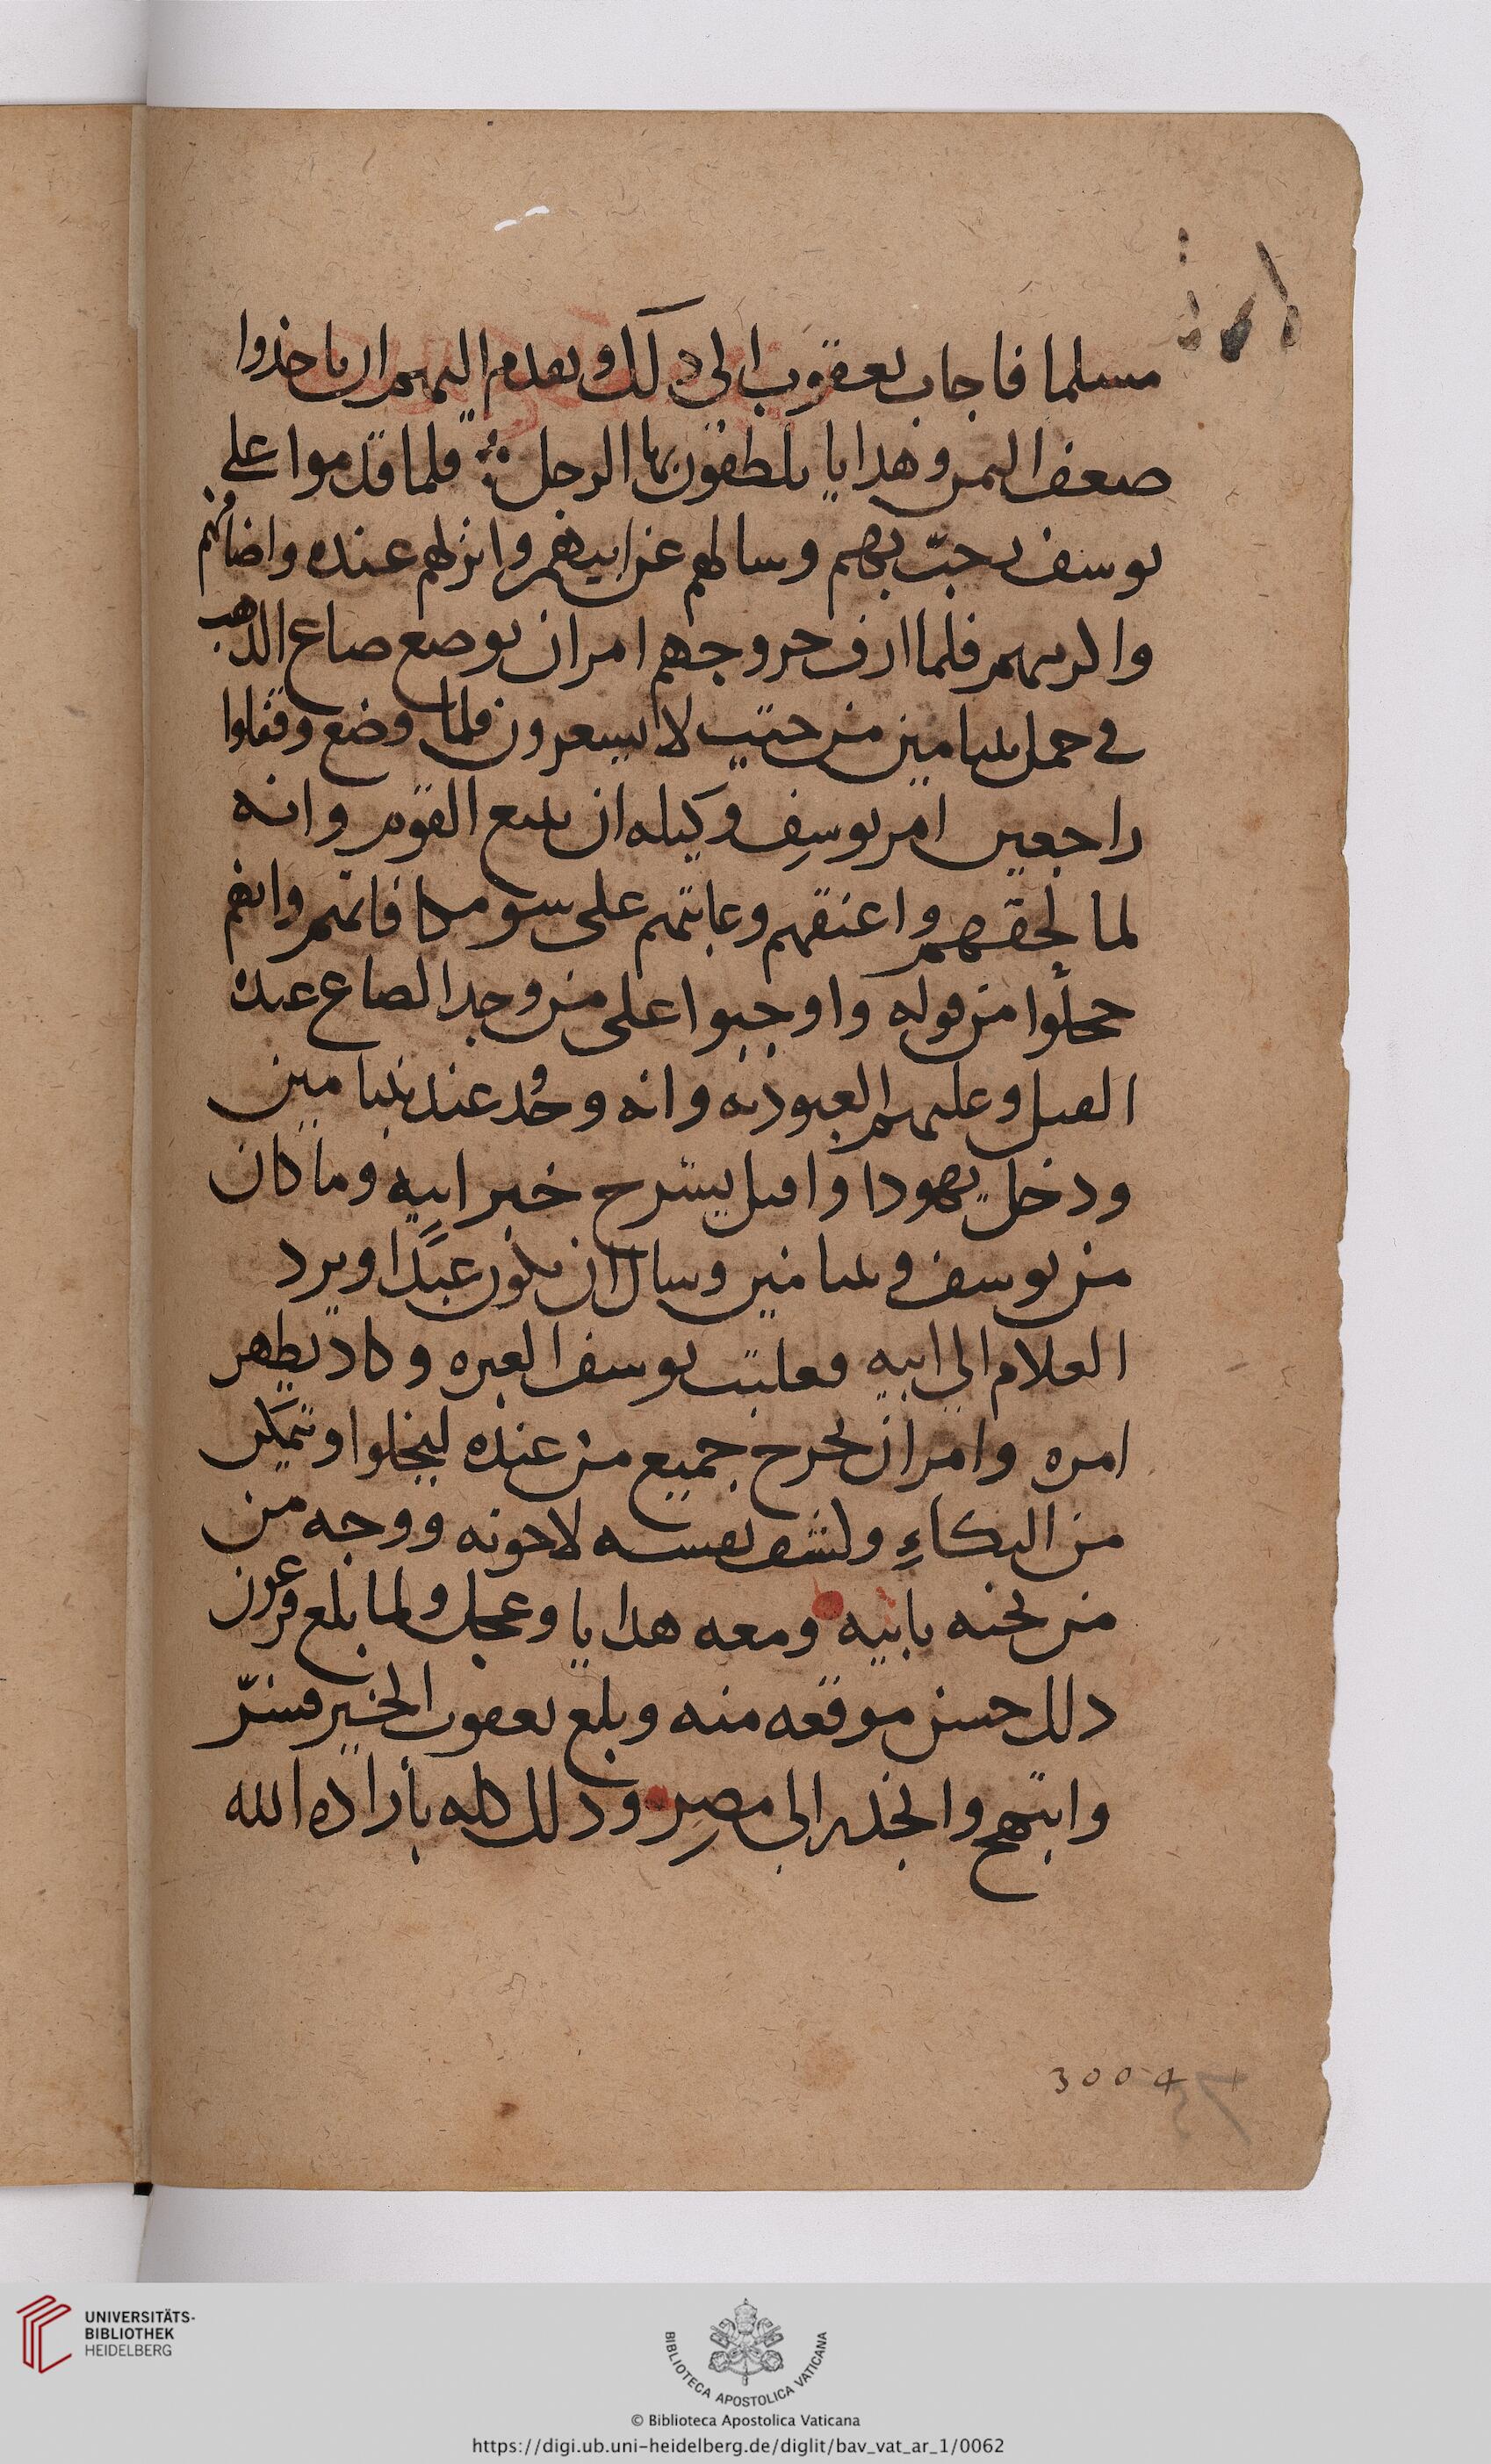 مسلما فاجاب يعقوب الى ذلك وتقدم اليهم ان ياخذوا
ضعف الثمن وهدايا يلطفون بها الرجل فلما قدموا على
يوسف رحّب بهم وسالهم عن ابيهم وانزلهم عنده واضافهم
واكرمهم فلما ازف خروجهم امر ان يوضع صاع الذهب
في حمل بنيامين من حيث لا يشعرون فلما وضع وقفلوا
راجعين امر يوسف وكيله ان يتبع القوم وانه
لما لحقهم واعنقهم وعاتبهم على سو مكافاتهم وانهم
خجلوا من قوله واوجبوا على من وجد الصاع عنده
القتل وعليهم العبوديه وانه وجد عند بنيامين
ودخل يهودا واقبل يشرح خبر ابيه وما كان
من يوسف وبنيامين وسال ان يكون عبدًا ويرد
الغلام الى ابيه فغلبت يوسف العبره وكاد يظهر
امره وامر ان يخرج جميع من عنده ليخلوا ويتمكن
من البكاءِ وكشف نفسه لاخوته ووجه من
من يجيه بابيه ومعه هدايا وعجل ولما بلغ فرعون
ذلك حسن موقعه منه وبلغ يعقوب الخبر فسرّ
وابتهج وانحدر الى مصر وذلك كله بارادة الله
3004
UNIVERSITÄTS-
BIBLIOTHEK
HEIDELBERG
BIBLIOTECA APOSTOLICA VATICANA
© Biblioteca Apostolica Vaticana
https://digi.ub.uni-heidelberg.de/diglit/bav_vat_ar_1/0062